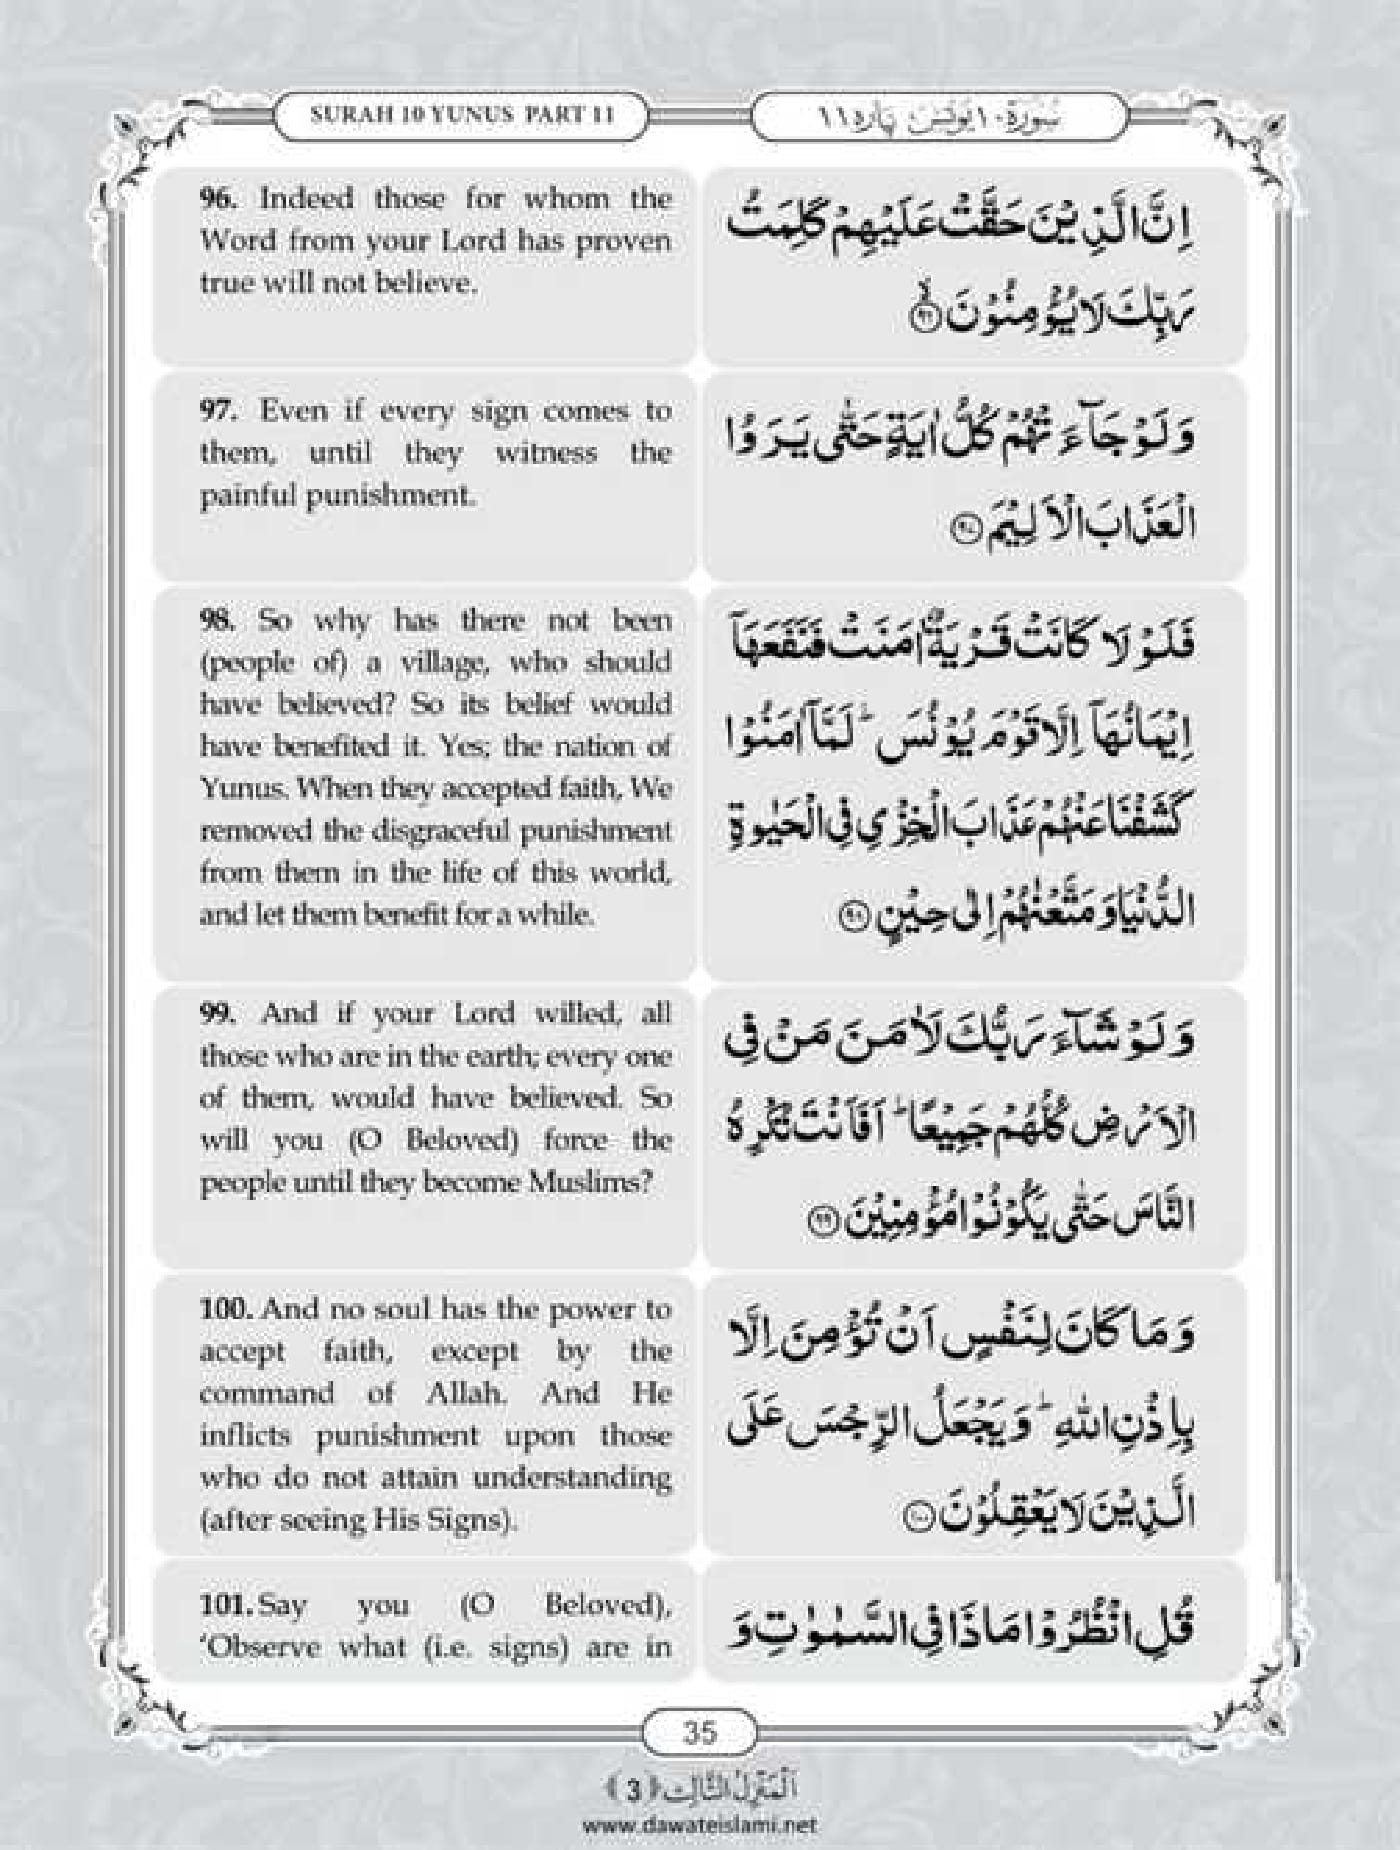 SURAH 10 YUNUS PART 11
سُوْرَة ١٠ يُوْنُس پاره ١١
96. Indeed those for whom the
Word from your Lord has proven
true will not believe.
اِنَّ الَّذِيْنَ حَقَّتْ عَلَيْهِمْ كَلِمَتُ
رَبِّكَ لَا يُؤْمِنُوْنَ ۙ﴿۹۶﴾
97. Even if every sign comes to
them, until they witness the
painful punishment.
وَ لَوْ جَآءَتْهُمْ كُلُّ اٰيَةٍ حَتّٰى يَرَوُا
الْعَذَابَ الْاَلِيْمَ ﴿۹۷﴾
98. So why has there not been
(people of) a village, who should
have believed? So its belief would
have benefited it. Yes; the nation of
Yunus. When they accepted faith, We
removed the disgraceful punishment
from them in the life of this world,
and let them benefit for a while.
فَلَوْ لَا كَانَتْ قَرْيَةٌ اٰمَنَتْ فَنَفَعَهَاۤ
اِيْمَانُهَاۤ اِلَّا قَوْمَ يُوْنُسَ ؕ لَمَّاۤ اٰمَنُوْا
كَشَفْنَا عَنْهُمْ عَذَابَ الْخِزْيِ فِي الْحَيٰوةِ
الدُّنْيَا وَ مَتَّعْنٰهُمْ اِلٰى حِيْنٍ ﴿۹۸﴾
99. And if your Lord willed, all
those who are in the earth; every one
of them, would have believed. So
will you (O Beloved) force the
people until they become Muslims?
وَ لَوْ شَآءَ رَبُّكَ لَاٰمَنَ مَنْ فِي
الْاَرْضِ كُلُّهُمْ جَمِيْعًا ؕ اَفَاَنْتَ تُكْرِهُ
النَّاسَ حَتّٰى يَكُوْنُوْا مُؤْمِنِيْنَ ﴿۹۹﴾
100. And no soul has the power to
accept faith, except by the
command of Allah. And He
inflicts punishment upon those
who do not attain understanding
(after seeing His Signs).
وَ مَا كَانَ لِنَفْسٍ اَنْ تُؤْمِنَ اِلَّا
بِاِذْنِ اللّٰهِ ؕ وَ يَجْعَلُ الرِّجْسَ عَلَى
الَّذِيْنَ لَا يَعْقِلُوْنَ ﴿۱۰۰﴾
101. Say you (O Beloved),
‘Observe what (i.e. signs) are in
قُلِ انْظُرُوْا مَاذَا فِي السَّمٰوٰتِ وَ
35
اَلْمَنْزِلُ الثَّالِث ﴿3﴾
www.dawateislami.net